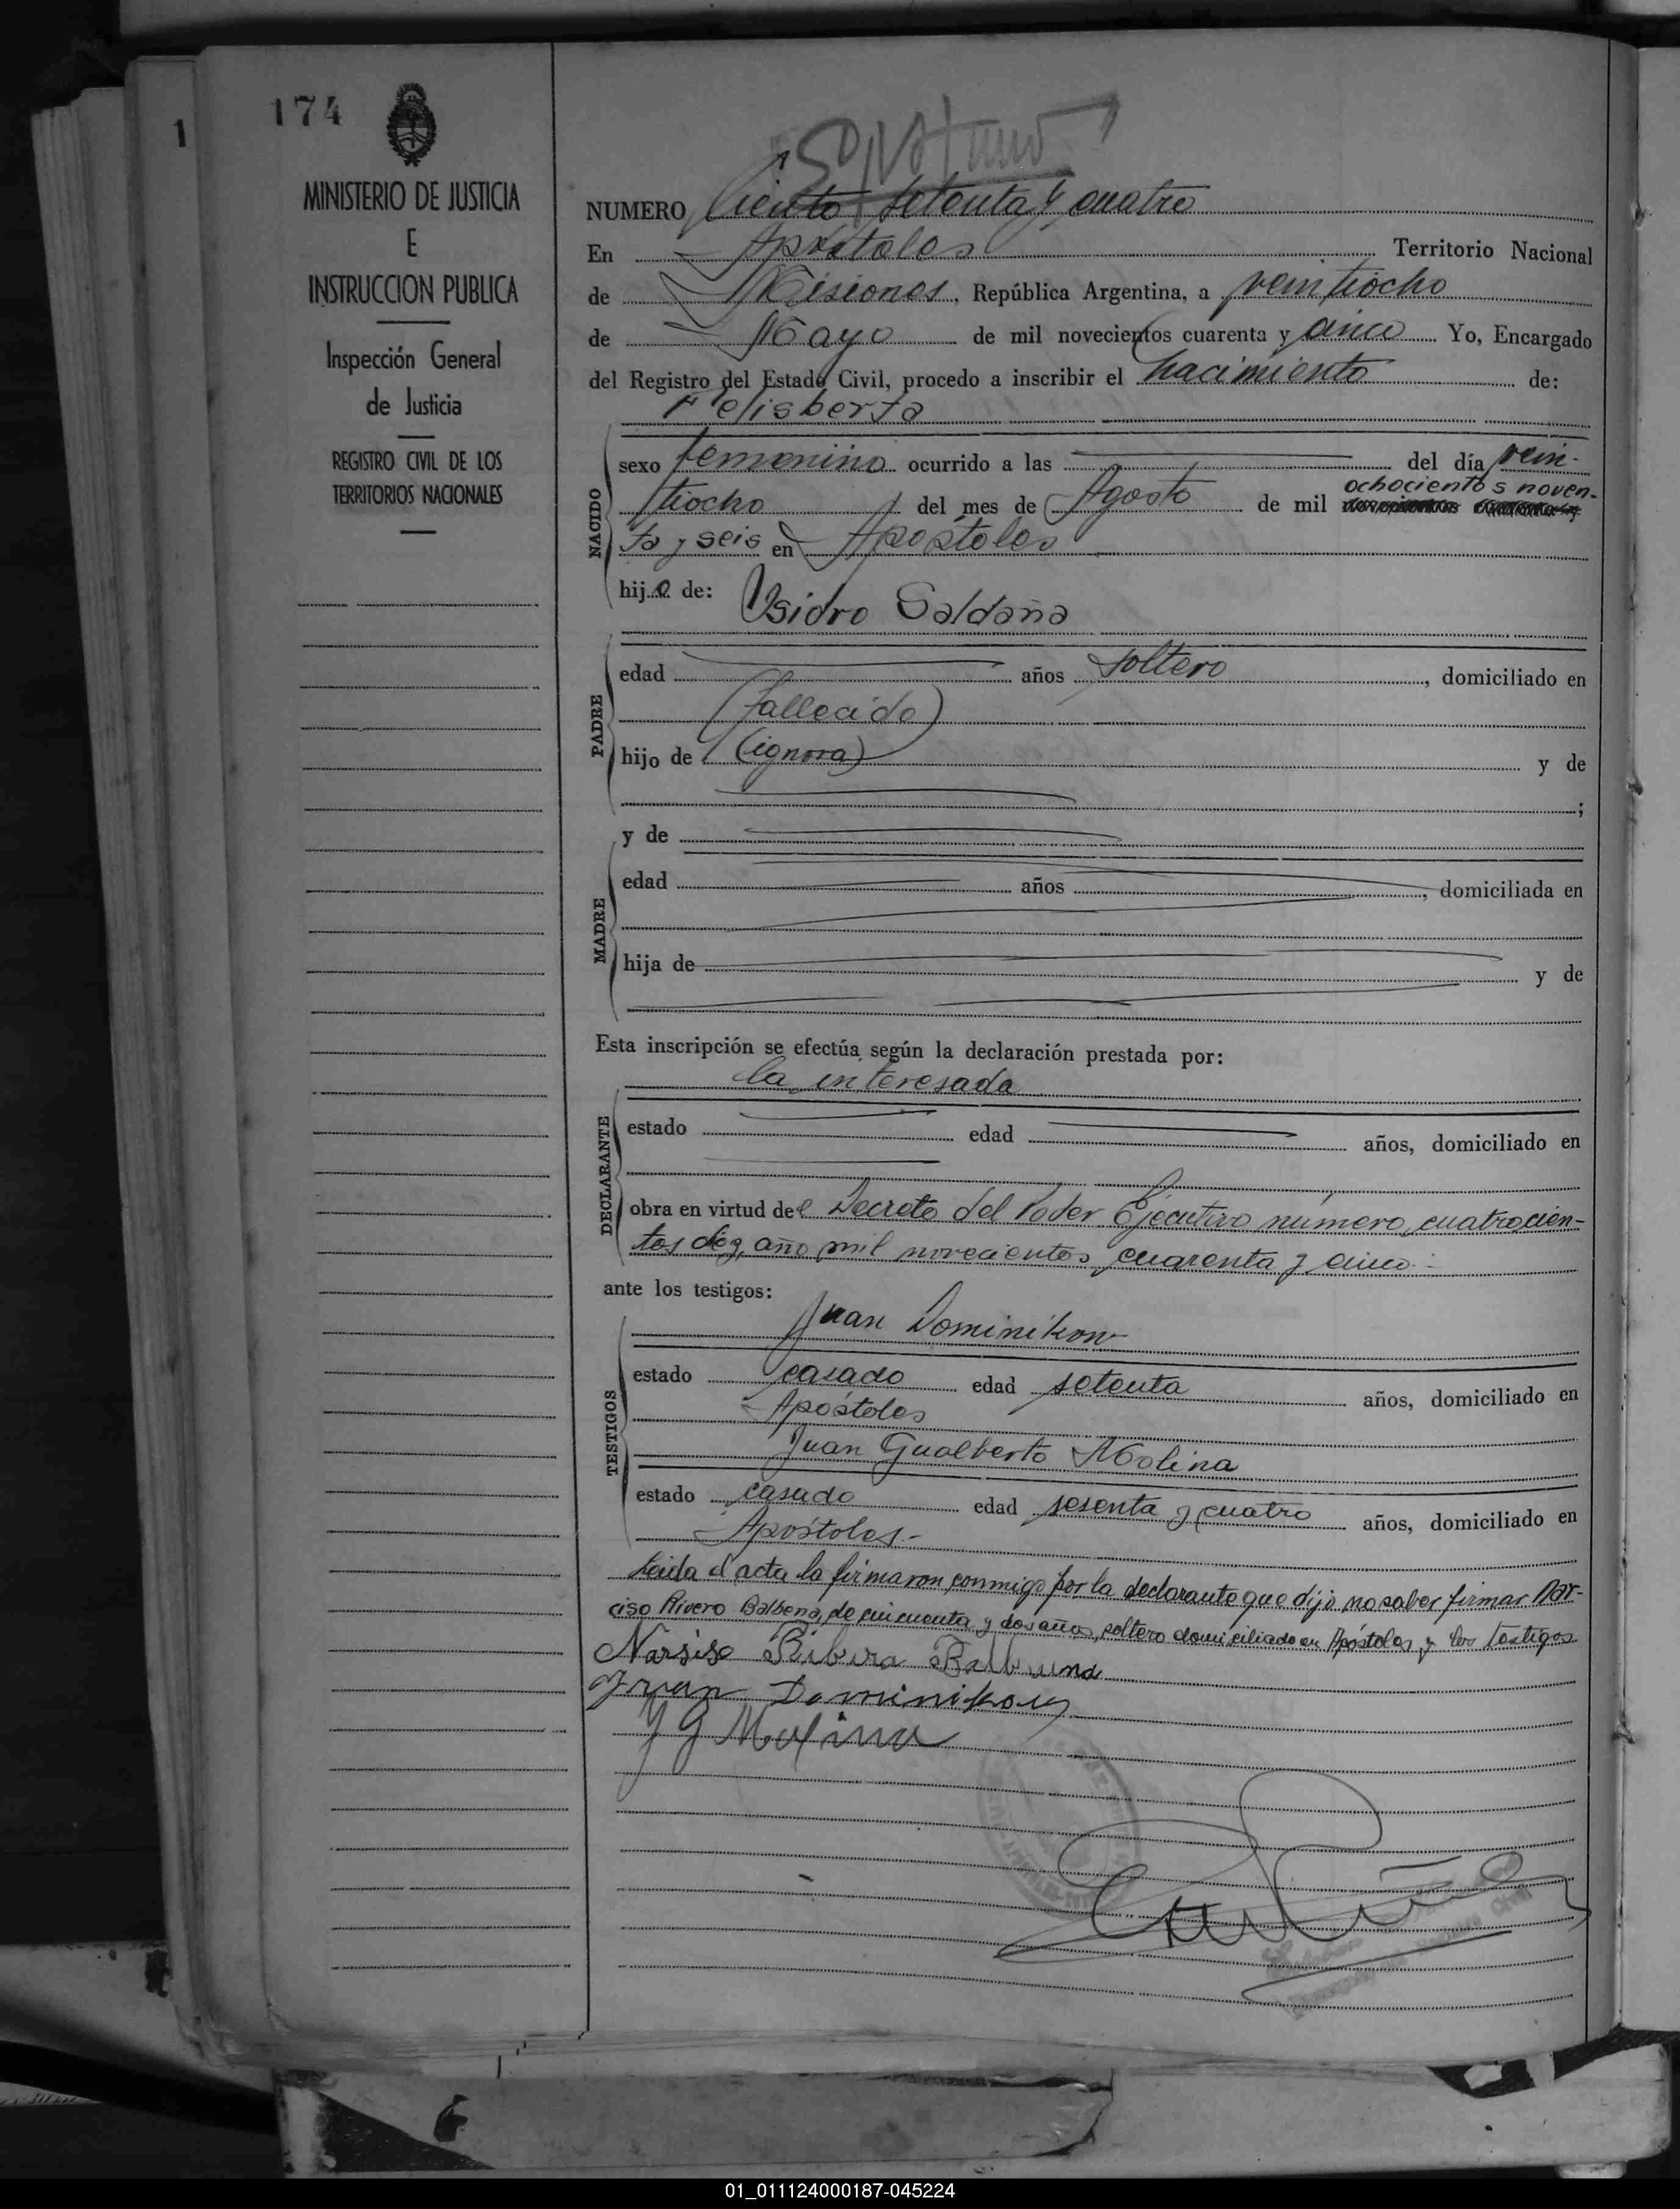 174
1
MINISTERIO DE JUSTICIA
E
INSTRUCCION PUBLICA
Inspección General
de Justicia
REGISTRO CIVIL DE LOS
TERRITORIOS NACIONALES
NUMERO Ciento setenta y cuatro
En Apóstoles Territorio Nacional
de Misiones, República Argentina, a veintiocho
de Mayo de mil novecientos cuarenta y cinco Yo, Encargado
del Registro del Estado Civil, procedo a inscribir el nacimiento de:
Felisberta
NACIDO
sexo femenino ocurrido a las del día vein-
ochocientos noven-
tiocho del mes de Agosto de mil
ta y seis en Apóstoles
hija de: Isidro Saldaña
PADRE
edad años soltero, domiciliado en
(fallecido)
hijo de (ignora) y de
;
y de
MADRE
edad años , domiciliada en
hija de y de
Esta inscripción se efectúa según la declaración prestada por:
la interesada
DECLARANTE
estado edad años, domiciliado en
obra en virtud del Decreto del Poder Ejecutivo número cuatrocien-
tos diez, año mil novecientos cuarenta y cinco.-
ante los testigos:
TESTIGOS
Juan Dominikow
estado casado edad setenta años, domiciliado en
Apóstoles
Juan Gualberto Molina
estado casado edad sesenta y cuatro años, domiciliado en
Apóstoles.-
Leida el acta la firmaron conmigo por la declarante que dijo no saber firmar Nar-
ciso Rivero Balbena, de cincuenta y dos años, soltero domiciliado en Apóstoles, y los testigos
Narsiso Ribera Balbuena
Juan Dominikow
J G Molina
01_011124000187-045224